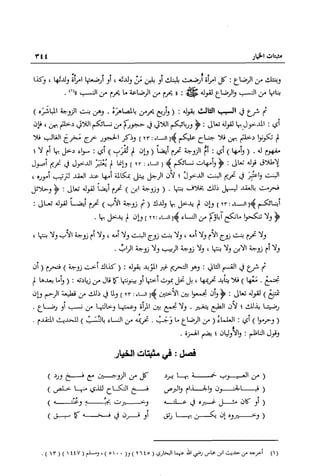 ٣٤٤ مثبتات الخيار
وبنتك من الرضاع : كل امرأة أرضعت بلبنك أو بلبن مَنْ ولدته ، أو أرضعتها امرأة ولدتها ، وكذا
بناتها من النسب والرضاع لقوله ﷺ : « يحرم من الرضاعة ما يحرم من النسب »(١) .
ثم شرع في السبب الثالث بقوله : ( وأربع يحرمن بالمصاهرة . وهن بنت الزوجة المباشرة )
أي : المدخول بها لقوله تعالى : ﴿ وربائبكم اللاتي في حجوركم من نسائكم اللاتي دخلتم بهن ، فإن
لم تكونوا دخلتم بهن فلا جناح عليكم ﴾ [النساء : ٢٣] وذكر الحجور خرج مخرج الغالب فلا
مفهوم له . ( وأمها ) أي : أمُّ الزوجة تحرم أيضاً ( وإن لم تُقْرَب ) أي : سواء دخل بها أم لا ؛
لإطلاق قوله تعالى : ﴿ وأمهات نسائكم ﴾ [النساء : ٢٣] وإنما لم يُعْتَبَر الدخول في تحريم أصول
البنت واعتبر في تحريم البنت الدخول ؛ لأن الرجل يبتلى بمكالمة أمها عند العقد لترتيب أموره ،
فحرمت بالعقد ليسهل ذلك بخلاف بنتها . ( وزوجة ابن ) تحرم أيضاً لقوله تعالى : ﴿ وحلائل
أبنائكم ﴾ [النساء : ٢٣] وإن لم يدخل بها ولدك ( ثم زوجة الأب ) تحرم أيضاً لقوله تعالى :
﴿ ولا تنكحوا ما نكح آباؤكم من النساء ﴾ [النساء : ٢٢] وإن لم يدخل بها .
ولا تحرم بنت زوج الأم ولا أمه ، ولا بنت زوج البنت ولا أمه ، ولا أم زوجة الأب ولا بنتها ،
ولا أم زوجة الابن ولا بنتها ، ولا زوجة الربيب ولا زوجة الرابّ .
ثم شرع في القسم الثاني : وهو التحريم غير المؤبد بقوله : ( كذاك أخت زوجة ) فتحرم ( أن
تجمع . معْها ) فلا يتأبد تحريمها ، بل تحل بموت أختها أو بينونتها كما قال من زيادته : ( وأما بعدها لم
تمتنع ) لقوله تعالى : ﴿ وأن تجمعوا بين الأختين ﴾ [النساء : ٢٣] ولما في ذلك من قطيعة الرحم وإن
رضيتا بذلك ؛ لأن الطبع يتغير . ولا تجمع بين المرأة وعمتها وخالتها من نسب أو رضاع .
( وحرموا ) أي : العلماءُ ( من الرضاع ما وجب . تحريمُه من النساء بالنسَبْ ) للحديث المتقدم .
وقول الناظم : والأوليان ؛ بضم الهمزة .
فصل : في مثبتات الخيار
( من العيوب خمسة بها يرد كل من الزوجين مع فسخ ورد )
( فبالجنون والجذام والبرص فسخ النكاح للذي منها خلص )
( أو كان مثل غيره في علته وخيرت بجبه وعنته )
( وخيروه إن يكن بها رتق أو قرن في فسخه كما سبق )
(١) أخرجه من حديث ابن عباس رضي الله عنهما البخاري ( ٢٦٤٥ ) و ( ٥١٠٠ ) ، ومسلم ( ١٤٤٧ ) ( ١٣ ) .